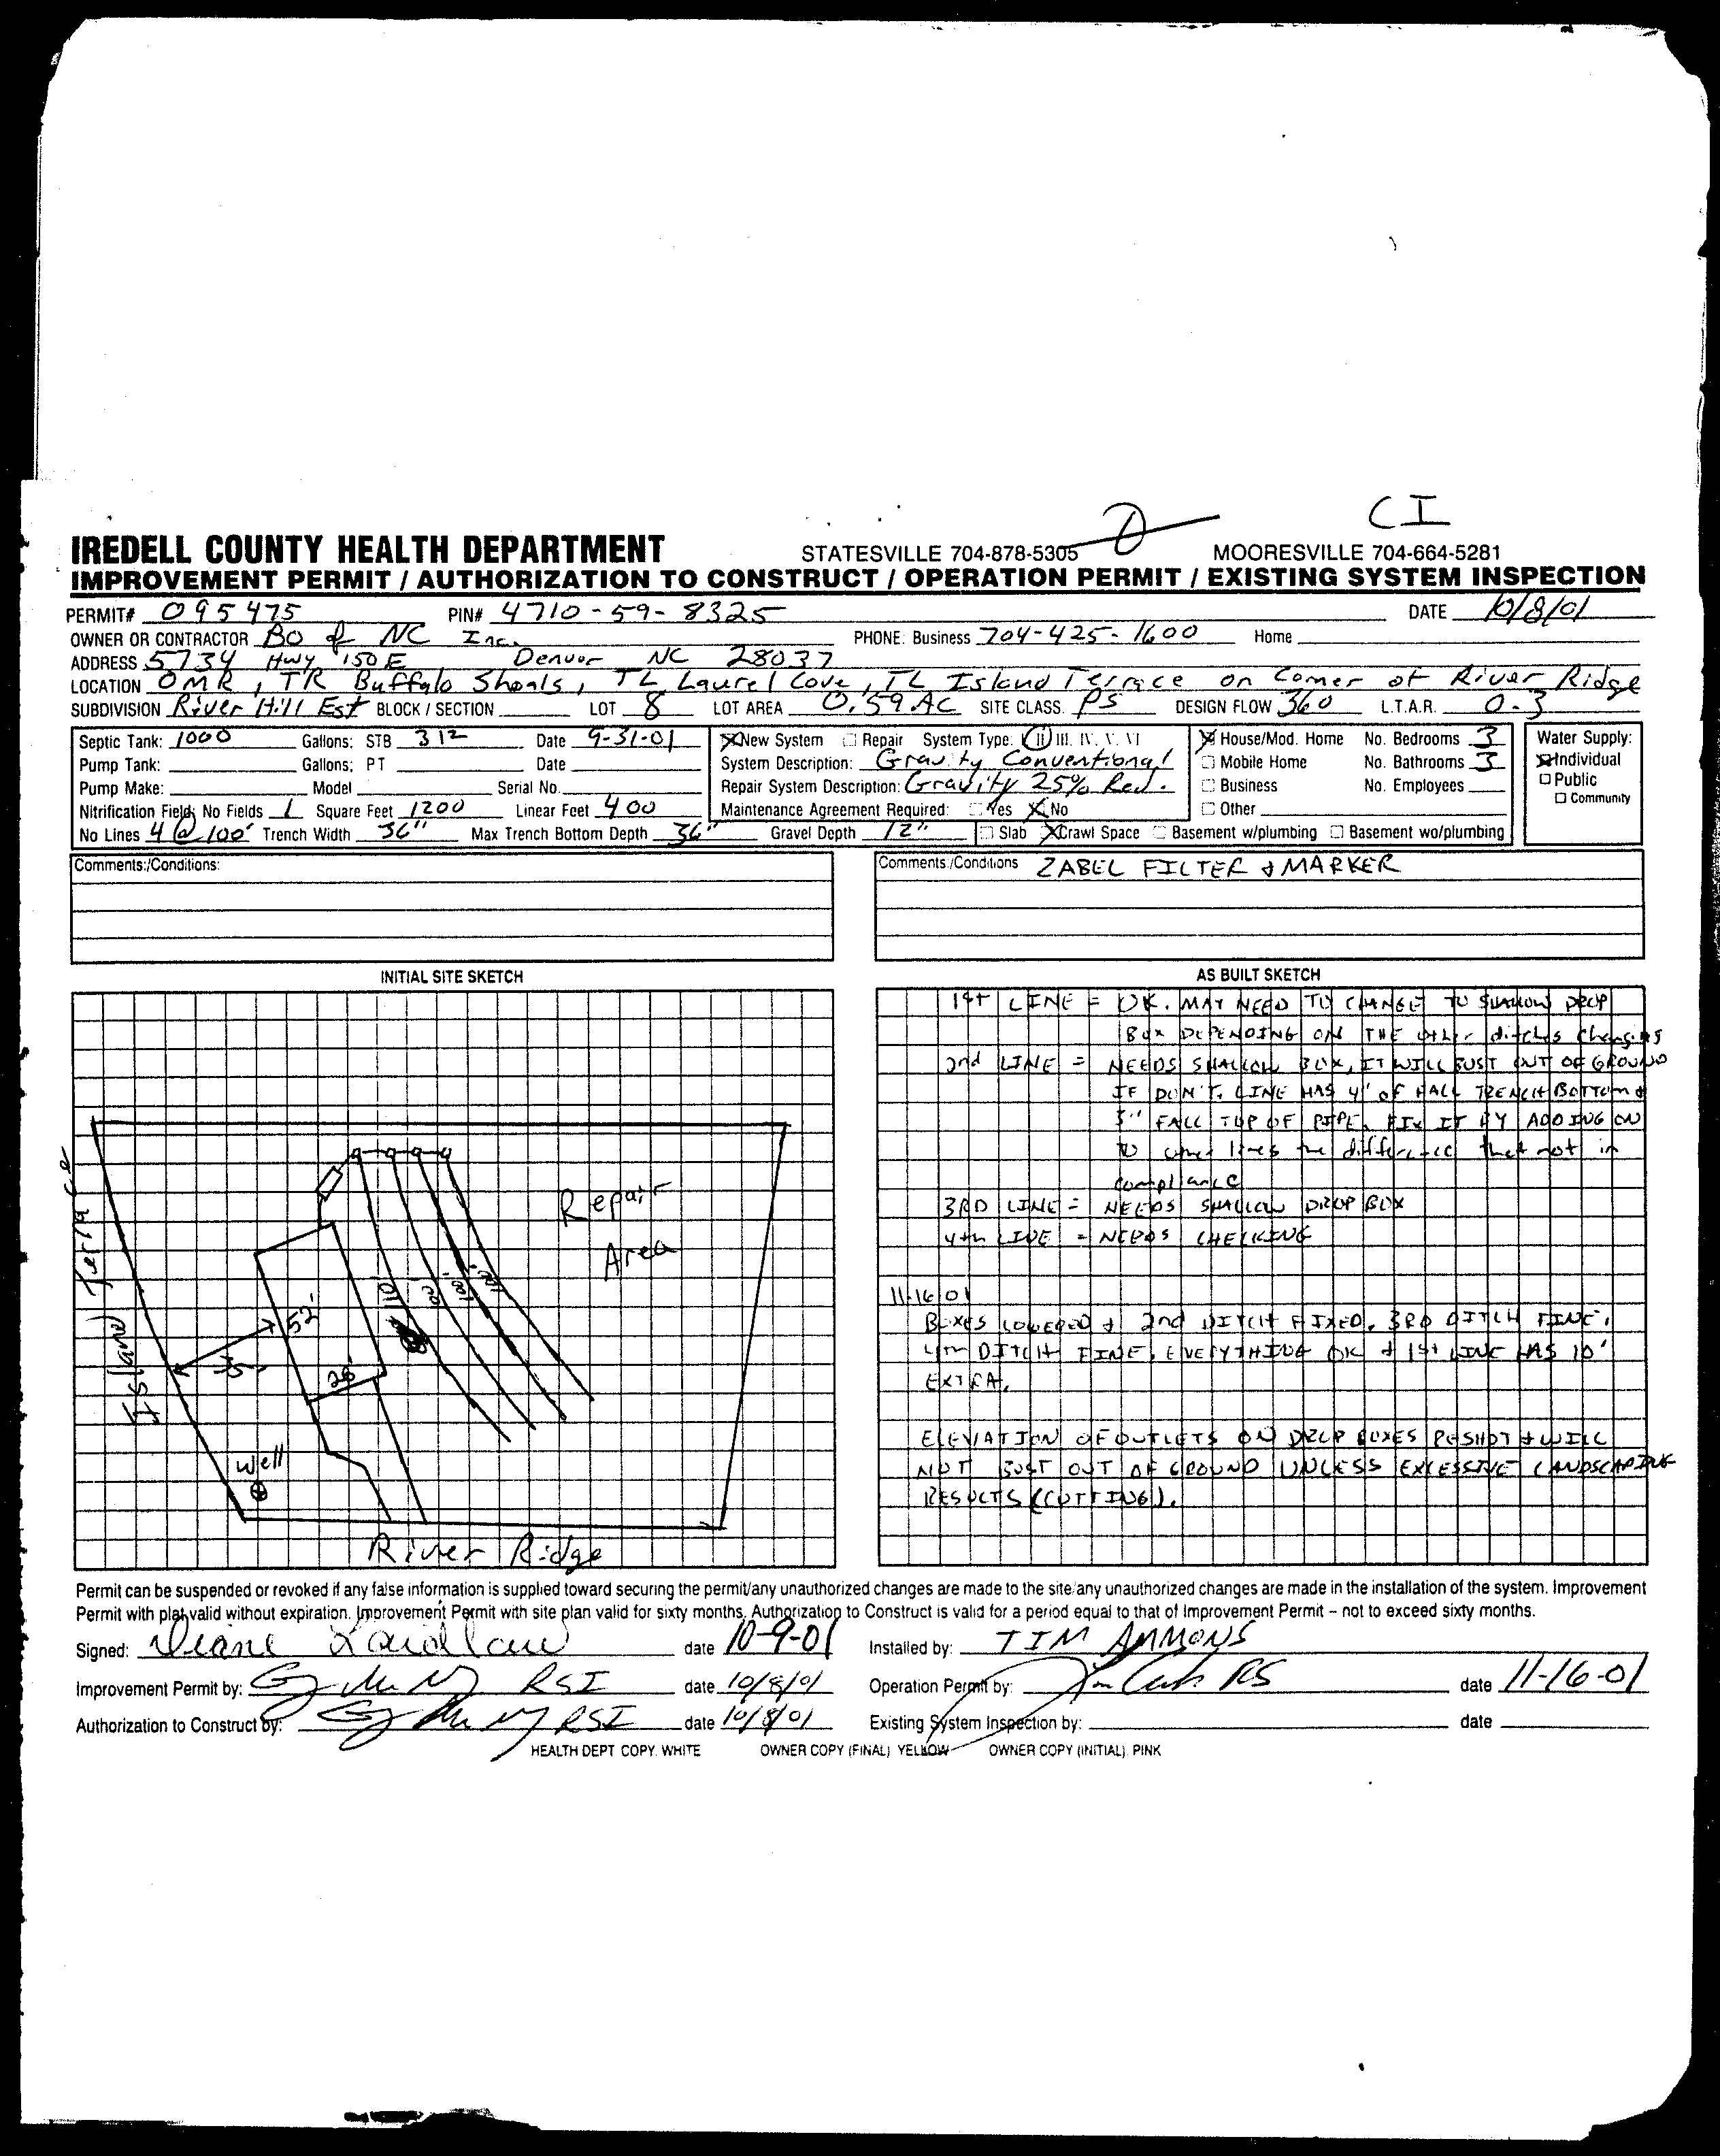 CI
IREDELL COUNTY HEALTH DEPARTMENT STATESVILLE 704-878-5305 MOORESVILLE 704-664-5281
IMPROVEMENT PERMIT / AUTHORIZATION TO CONSTRUCT / OPERATION PERMIT / EXISTING SYSTEM INSPECTION
PERMIT# 095475 PIN# 4710-59-8325 DATE 10/8/01
OWNER OR CONTRACTOR BO of NC Inc. PHONE: Business 704-425-1600 Home
ADDRESS 5734 Hwy 150 E Denver NC 28037
LOCATION OMR, TR Buffalo Shoals, TL Laurel Cove, TL Island Terrace on Corner of River Ridge
SUBDIVISION River Hill Est BLOCK / SECTION LOT 8 LOT AREA 0.59 AC SITE CLASS. PS DESIGN FLOW 360 L.T.A.R. 0.3
Septic Tank: 1000 Gallons: STB 312 Date 9-31-01 New System Repair System Type: II III, IV, V, VI House/Mod. Home No. Bedrooms 3 Water Supply:
Pump Tank: Gallons: PT Date System Description: Gravity Conventional Mobile Home No. Bathrooms 3 Individual
Pump Make: Model Serial No. Repair System Description: Gravity 25% Red. Business No. Employees Public
Nitrification Field: No Fields 1 Square Feet 1200 Linear Feet 400 Maintenance Agreement Required: Yes No Other Community
No Lines 4 @ 100' Trench Width 36" Max Trench Bottom Depth 36" Gravel Depth 12" Slab Crawl Space Basement w/plumbing Basement wo/plumbing
Comments:/Conditions: Comments:/Conditions ZABEL FILTER & MARKER
INITIAL SITE SKETCH AS BUILT SKETCH
Island Terrace
Repair
Area
110'
100'
100'
100'
52'
35'
28'
well
River Ridge
1st LINE = OK. MAY NEED TO CHANGE TO SHALLOW DROP
BOX DEPENDING ON THE other ditches changing
2nd LINE = NEEDS SHALLOW BOX, IT WILL BUST OUT OF GROUND
IF DON'T. LINE HAS 4" OF FALL TRENCH BOTTOM &
3" FALL TOP OF PIPE. FIX IT BY ADDING ON
TO other lines the difference that not in
compliance
3RD LINE = NEEDS SHALLOW DROP BOX
4th LINE = NEEDS CHECKING
11-16-01
BOXES LOWERED & 2nd DITCH FIXED. 3RD DITCH FINE.
4th DITCH FINE. EVERYTHING OK & 1st LINE HAS 10'
EXTRA.
ELEVATION OF OUTLETS ON DROP BOXES RESHOT & WILL
NOT BUST OUT OF GROUND UNLESS EXCESSIVE LANDSCAPING
RESULTS (CUTTING).
Permit can be suspended or revoked if any false information is supplied toward securing the permit/any unauthorized changes are made to the site/any unauthorized changes are made in the installation of the system. Improvement
Permit with plat valid without expiration. Improvement Permit with site plan valid for sixty months. Authorization to Construct is valid for a period equal to that of Improvement Permit – not to exceed sixty months.
Signed: Diane Laidlaw date 10-9-01 Installed by: TIM AMMONS
Improvement Permit by: RSI date 10/8/01 Operation Permit by: RS date 11-16-01
Authorization to Construct by: RSI date 10/8/01 Existing System Inspection by: date
HEALTH DEPT COPY. WHITE OWNER COPY (FINAL) YELLOW OWNER COPY (INITIAL) PINK